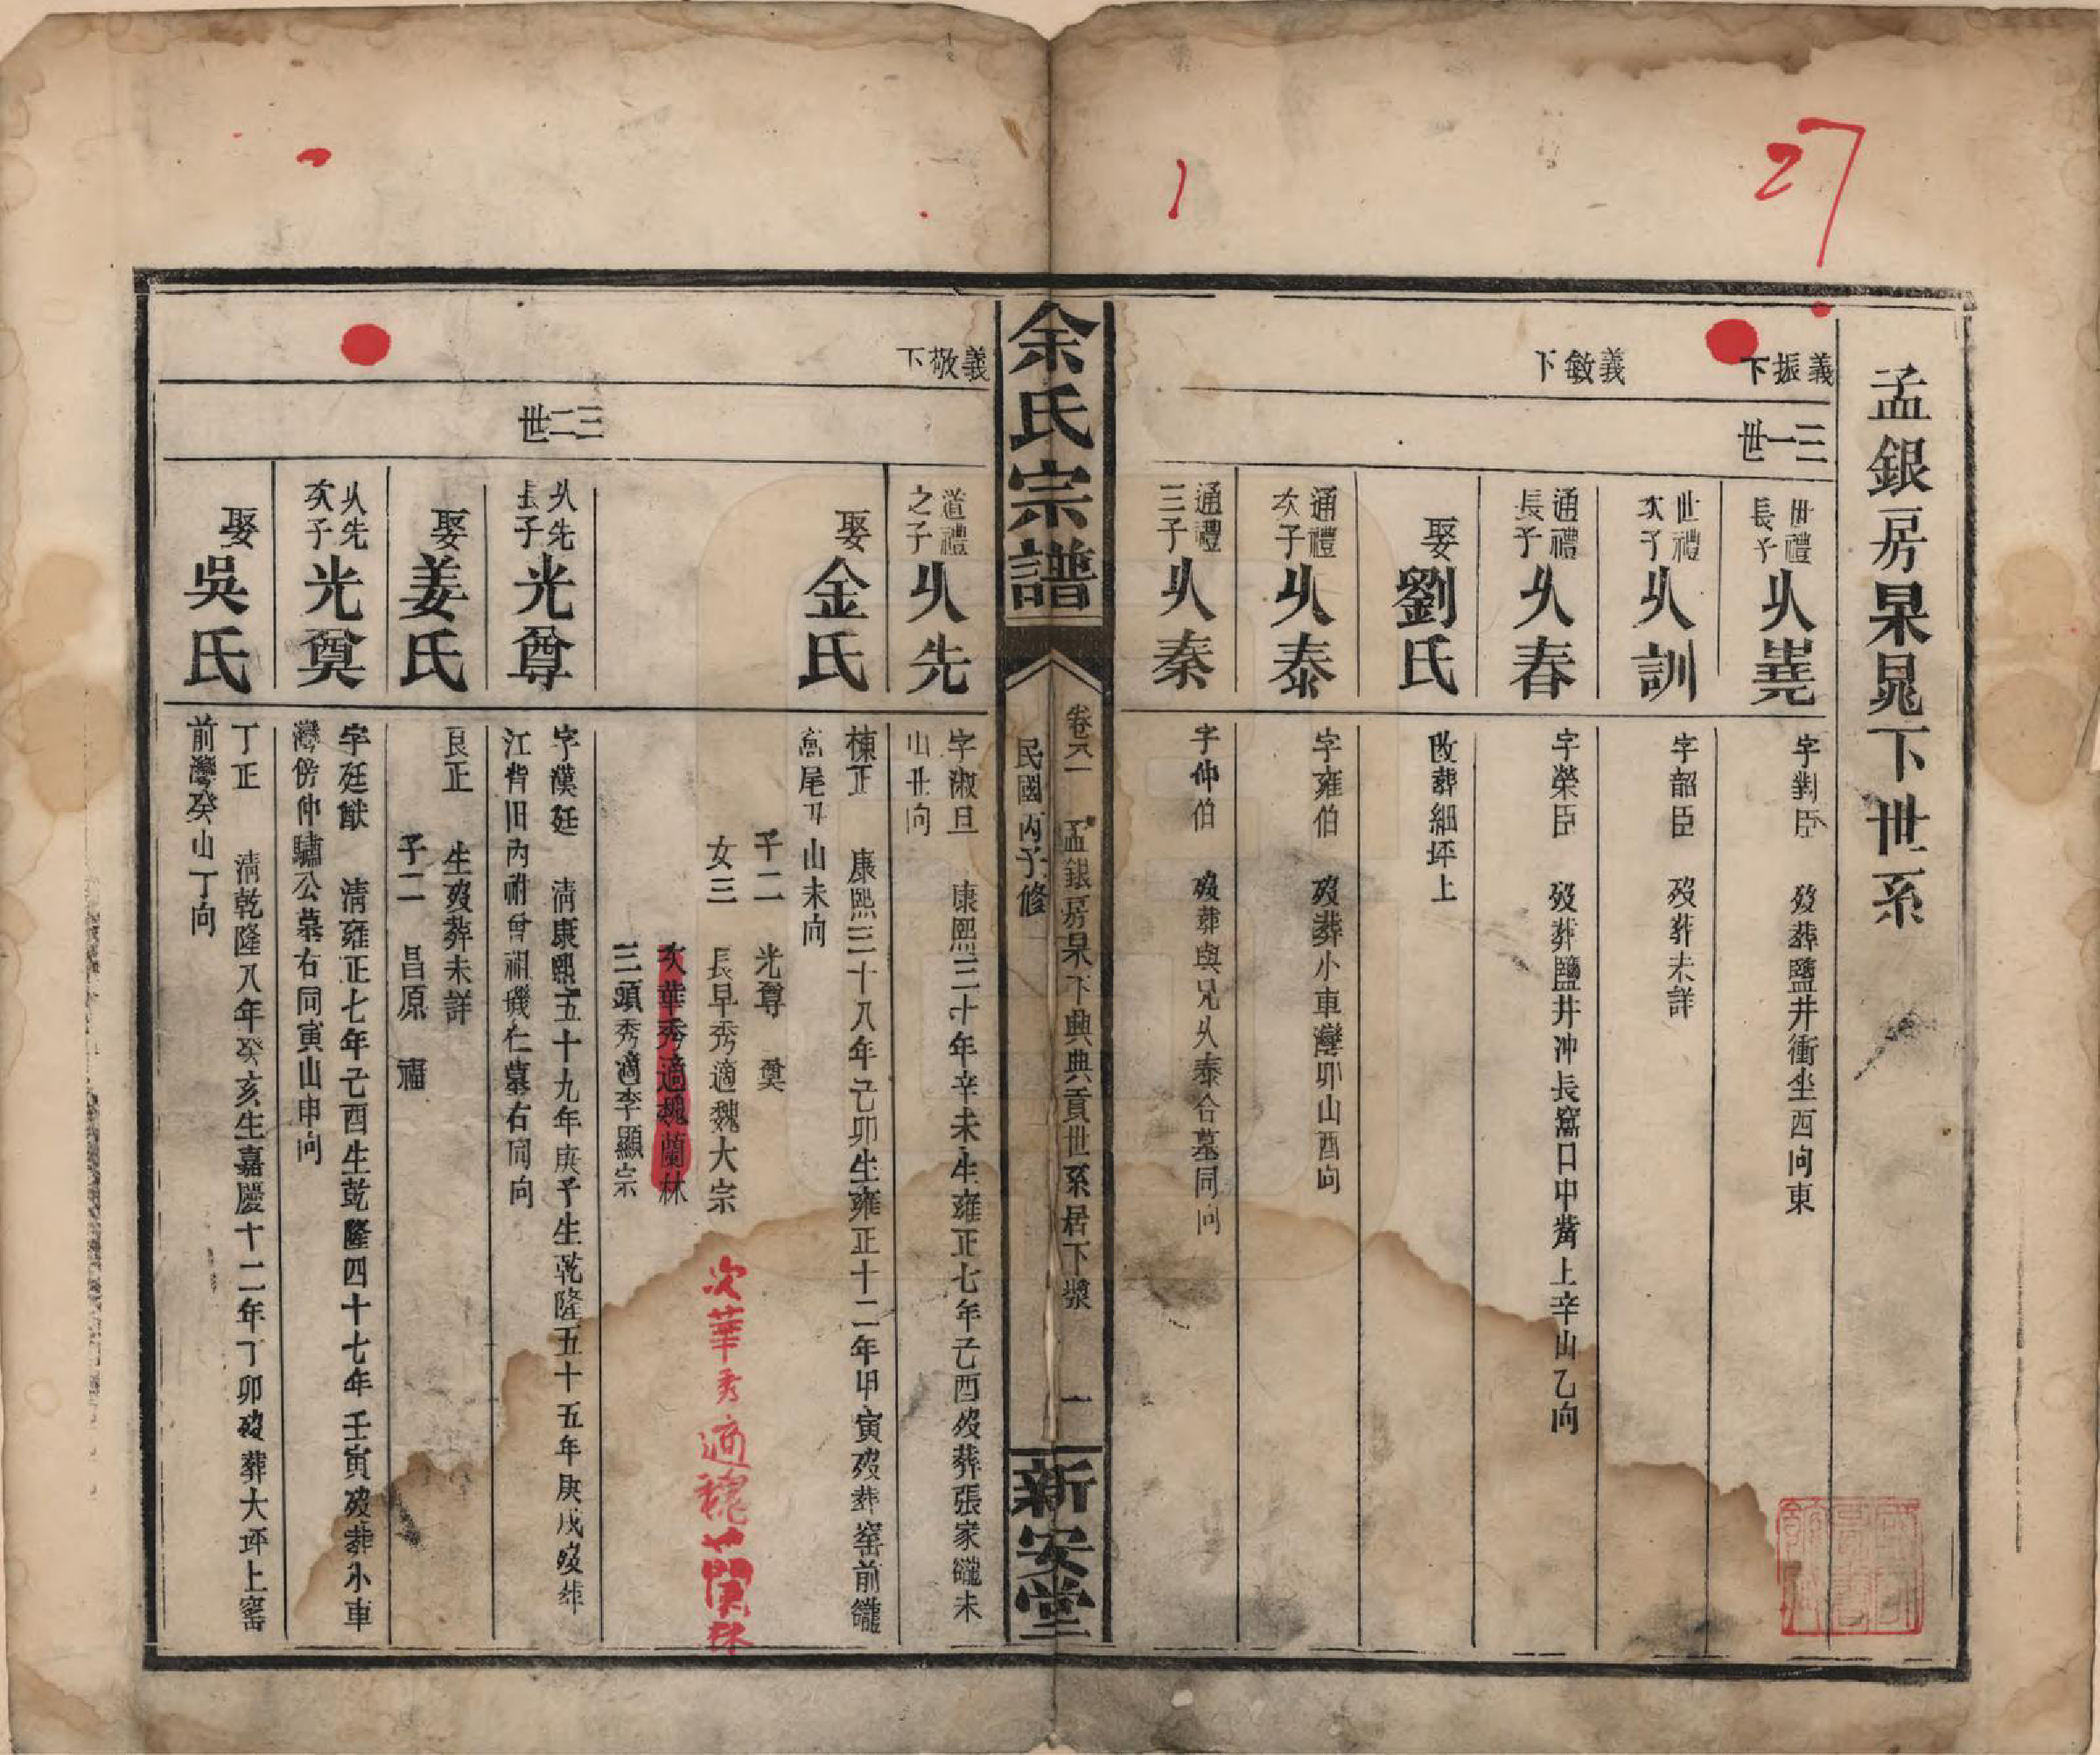 27
1
孟銀房杲晁下世系
義振下
義敏下
三一世
世禮長子乆嶤
字對臣 歿葬鹽井衝坐西向東
世禮次子乆訓
字韶臣 歿葬未詳
通禮長子乆春
字榮臣 歿葬鹽井冲長窩口中嘴上辛山乙向
娶劉氏
改葬細坪上
通禮次子乆泰
字雍伯 歿葬小車灣卯山酉向
通禮三子乆秦
字仲伯 歿葬與兄乆泰合墓同向
余氏宗譜
卷八一 孟銀房杲下典典貢世系居下漿 一
民國丙子修
新安堂
義敬下
道禮之子乆先
字淑旦 康熙三十年辛未生雍正七年己酉歿葬張家龍未
山丑向
娶金氏
棟正 康熙三十八年己卯生雍正十二年甲寅歿葬窑前龍
窩尾丑山未向
子二 光尊 奠
女三 長早秀適魏大宗
次華秀適魏蘭林
三頭秀適李顯宗
次華秀適魏蘭林
三二世
乆先長子光尊
字漢廷 清康熙五十九年庚子生乾隆五十五年庚戌歿葬
江背旧内祔曾祖璣仁墓右同向
娶姜氏
艮正 生歿葬未詳
子二 昌原 福
乆先次子光奠
字廷猷 清雍正七年己酉生乾隆四十七年壬寅歿葬小車
灣傍仲驌公墓右同寅山申向
娶吳氏
丁正 清乾隆八年癸亥生嘉慶十二年丁卯歿葬大坪上窑
前灣癸山丁向